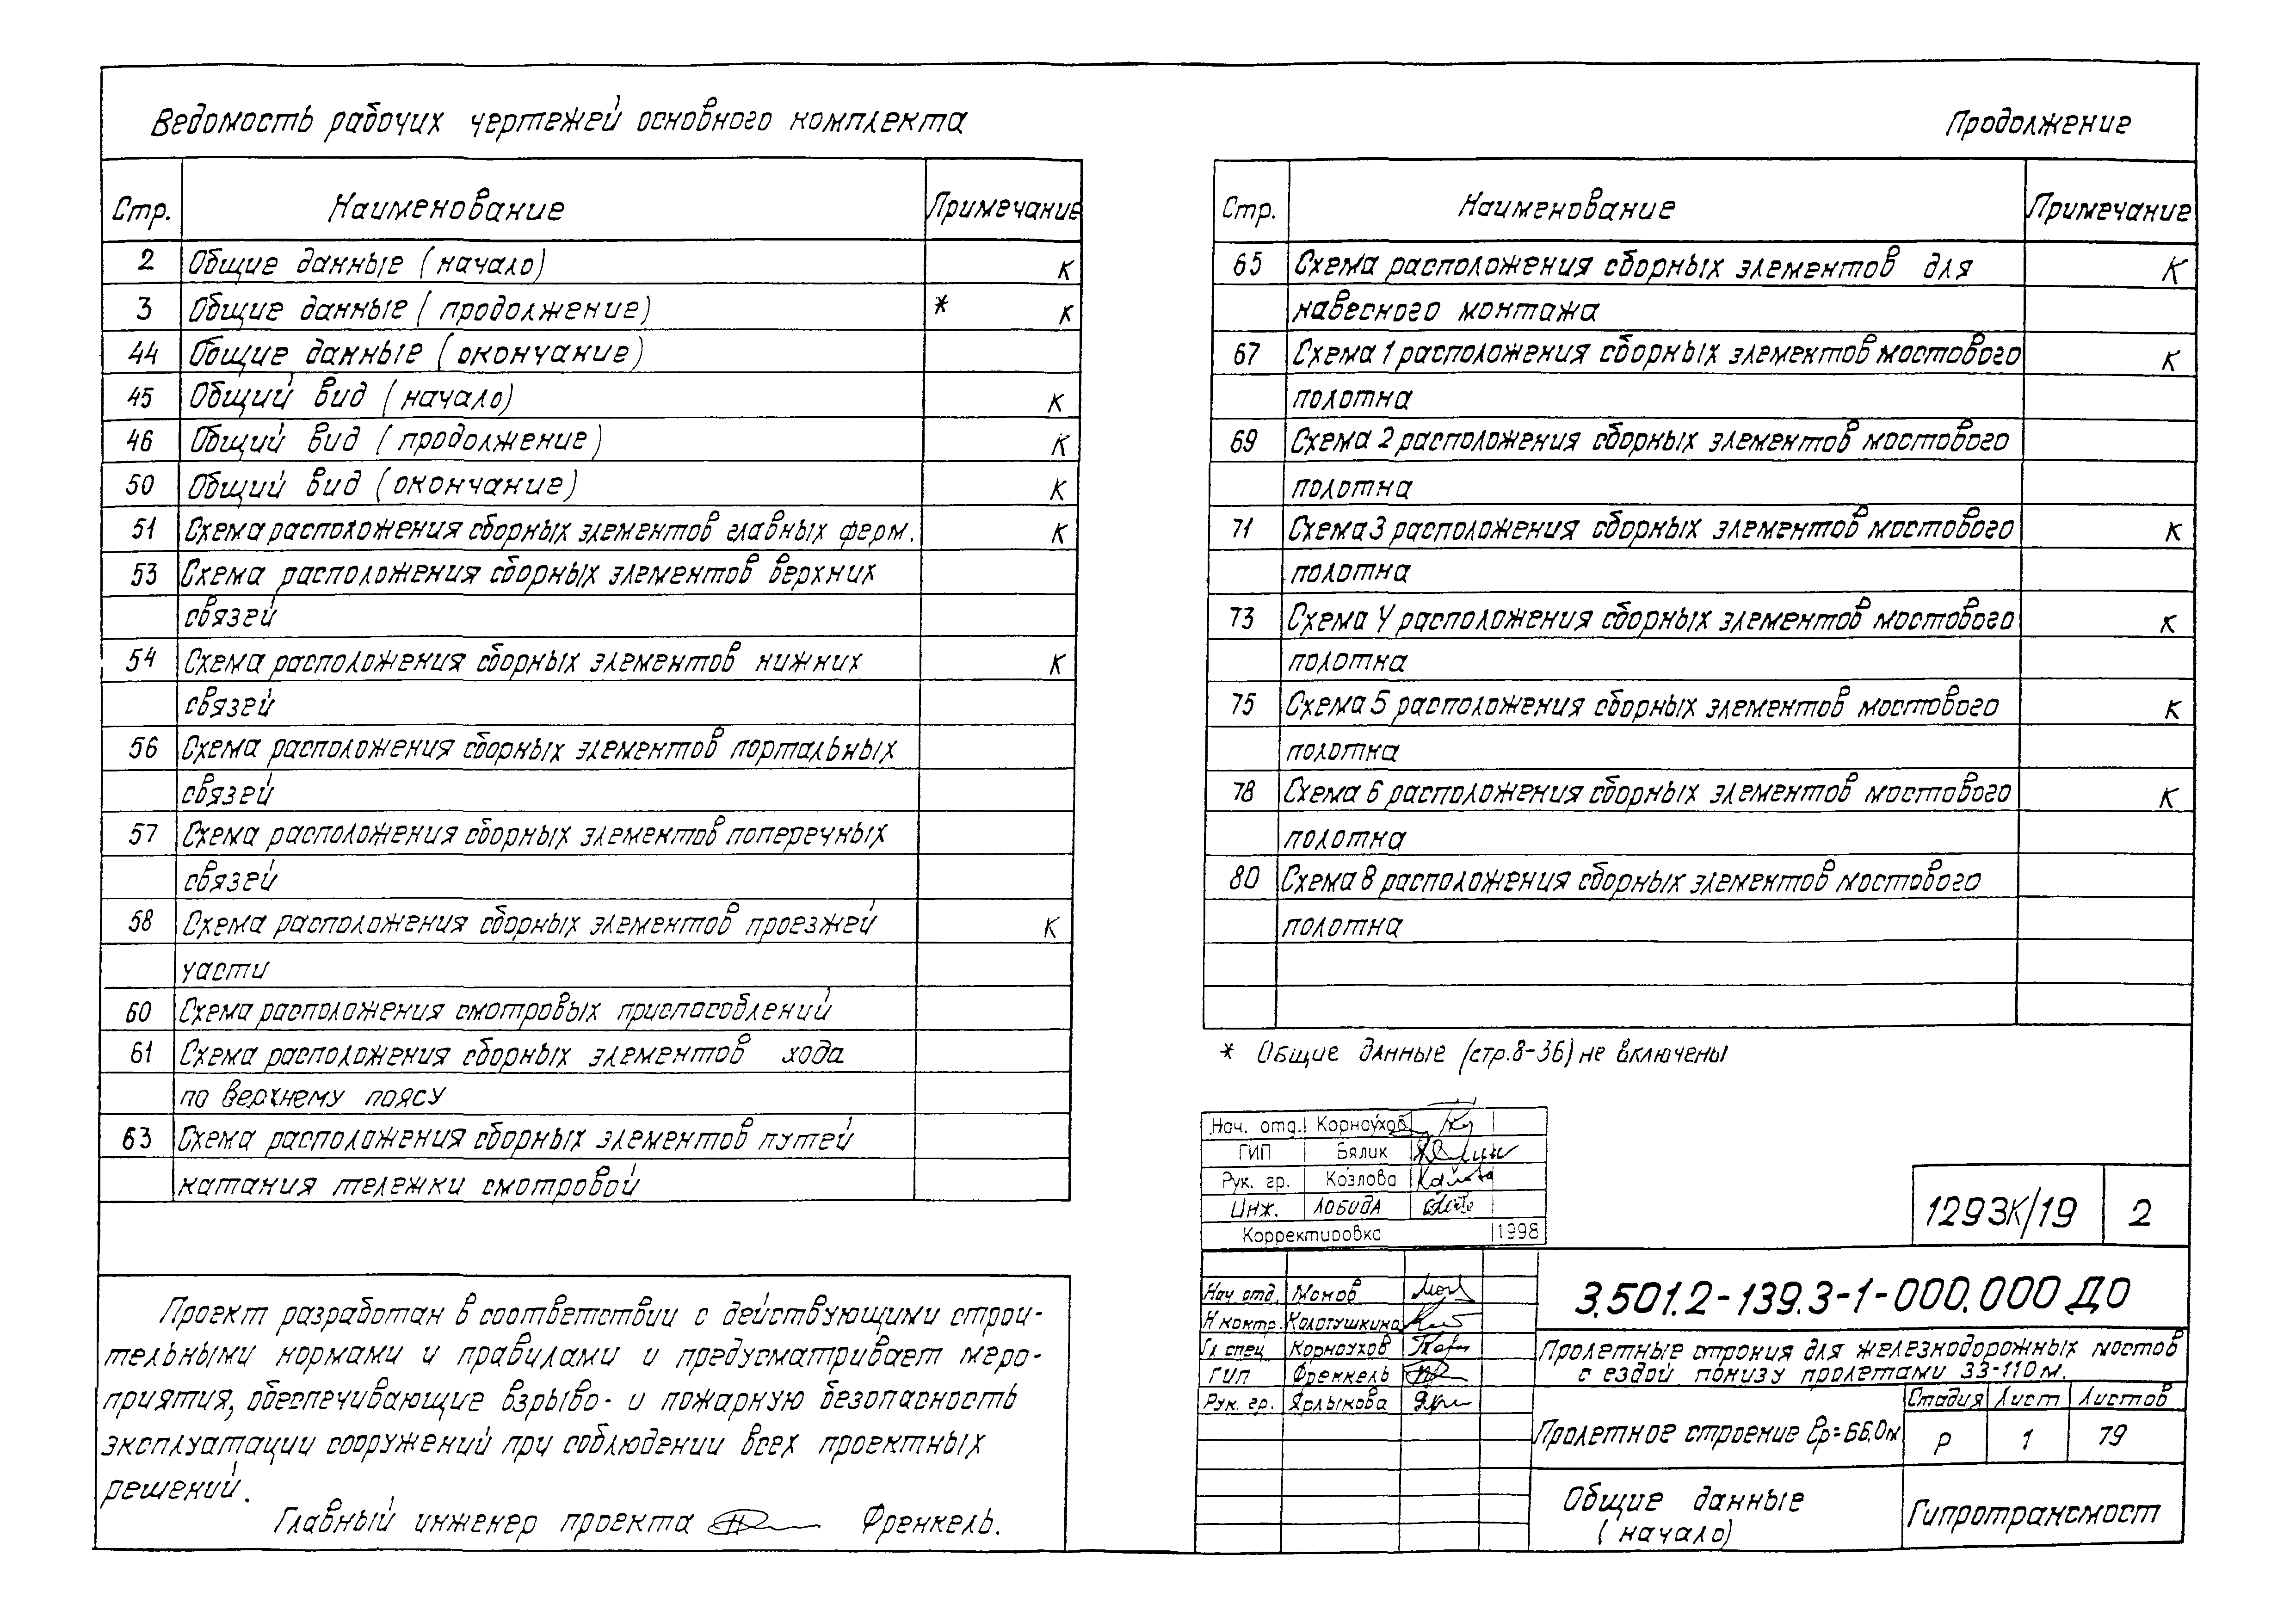 Ведомость рабочих чертежей основного комплекта
Продолжение
Стр. Наименование Примечание
2 Общие данные (начало) К
3 Общие данные (продолжение) * К
44 Общие данные (окончание)
45 Общий вид (начало) К
46 Общий вид (продолжение) К
50 Общий вид (окончание) К
51 Схема расположения сборных элементов главных ферм. К
53 Схема расположения сборных элементов верхних
связей
54 Схема расположения сборных элементов нижних К
связей
56 Схема расположения сборных элементов портальных
связей
57 Схема расположения сборных элементов поперечных
связей
58 Схема расположения сборных элементов проезжей К
части
60 Схема расположения смотровых приспособлений
61 Схема расположения сборных элементов хода
по верхнему поясу
63 Схема расположения сборных элементов путей
катания тележки смотровой
Стр. Наименование Примечание
65 Схема расположения сборных элементов для К
навесного монтажа
67 Схема 1 расположения сборных элементов мостового К
полотна
69 Схема 2 расположения сборных элементов мостового
полотна
71 Схема 3 расположения сборных элементов мостового К
полотна
73 Схема 4 расположения сборных элементов мостового К
полотна
75 Схема 5 расположения сборных элементов мостового К
полотна
78 Схема 6 расположения сборных элементов мостового К
полотна
80 Схема 8 расположения сборных элементов мостового
полотна
* Общие данные (стр.8-36) не включены
Проект разработан в соответствии с действующими строи-
тельными нормами и правилами и предусматривает меро-
приятия, обеспечивающие взрыво- и пожарную безопасность
эксплуатации сооружений при соблюдении всех проектных
решений.
Главный инженер проекта Френкель.
Нач. отд. Корноухов
ГИП Бялик
Рук. гр. Козлова
Инж. Лобода
Корректировка 1998
1293К/19 2
Нач отд. Монов
Н контр. Колотушкина
Гл спец Корноухов
ГИП Френкель
Рук. гр. Ярлыкова
3.501.2-139.3-1-000.000 ДО
Пролетные строния для железнодорожных мостов
с ездой понизу пролетами 33-110м.
Пролетное строение ℓр=66,0м
Стадия Лист Листов
Р 1 79
Общие данные
(начало)
Гипротрансмост